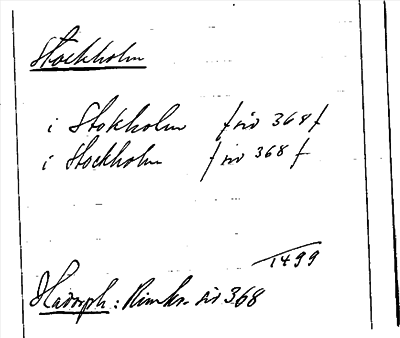 Stockholm
i Stokholm /sid 368/
i Stockholm /sid 368/
1499
Hadorph: Rimkr. sid 368